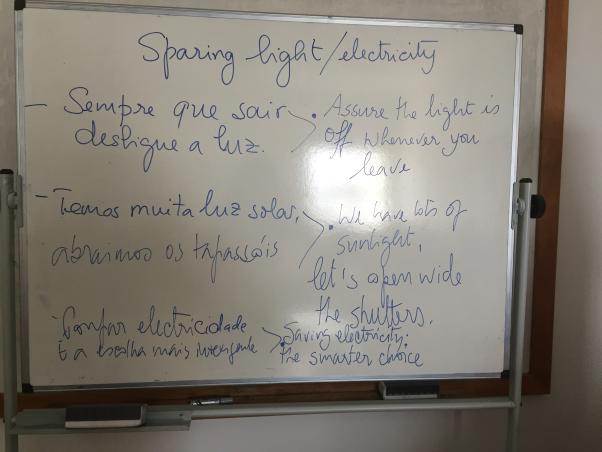 Sparing light/electricity
- Sempre que sair
desligue a luz.
• Assure the light is
off whenever you
leave
- Temos muita luz solar,
abraimos os tapassóis
• We have lots of
sunlight,
let's open wide
the shutters.
- Poupar electricidade
é a escolha mais inteligente
• Saving electricity:
the smarter choice